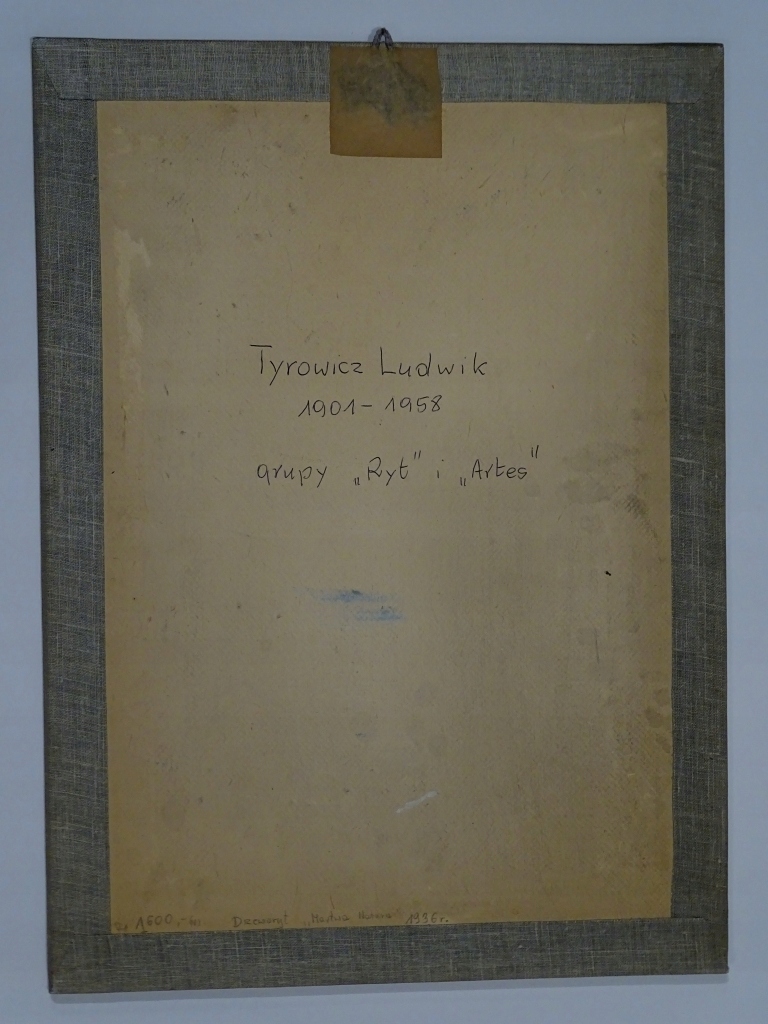 Tyrowicz Ludwik
1901 - 1958
grupy „Ryt" i „Artes"
1600,- Drzeworyt „Martwa Natura" 1936 r.